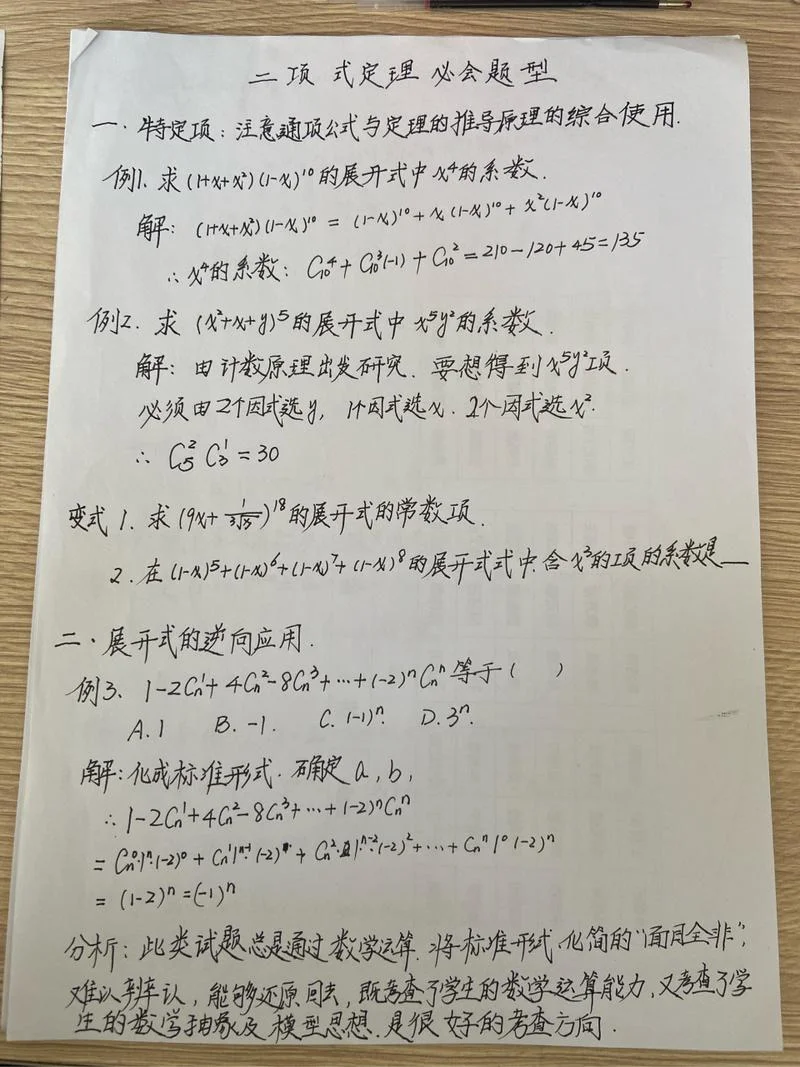 二项式定理必会题型
一、特定项：注意通项公式与定理的推导原理的综合使用.
例1. 求(1+x+x²)(1-x)¹⁰的展开式中x⁴的系数.
解：(1+x+x²)(1-x)¹⁰ = (1-x)¹⁰+x(1-x)¹⁰+x²(1-x)¹⁰
∴ x⁴的系数：C₁₀⁴+C₁₀³(-1)+C₁₀²=210-120+45=135
例2. 求 (x²+x+y)⁵的展开式中x⁵y²的系数.
解：由计数原理出发研究. 要想得到x⁵y²项.
必须由2个因式选y, 1个因式选x. 2个因式选x².
∴ C₅² C₃¹ = 30
变式 1. 求(9x+ 1/(3√x))¹⁸的展开式的常数项.
2. 在(1-x)⁵+(1-x)⁶+(1-x)⁷+(1-x)⁸的展开式式中.含x³的项的系数是__
二、展开式的逆向应用.
例3. 1-2Cₙ¹+4Cₙ²-8Cₙ³+…+(-2)ⁿCₙⁿ等于( )
A.1 B.-1. C.(-1)ⁿ. D.3ⁿ.
解：化成标准形式. 确定a,b,
∴ 1-2Cₙ¹+4Cₙ²-8Cₙ³+…+(-2)ⁿCₙⁿ
= Cₙ⁰·1ⁿ·(-2)⁰+Cₙ¹1ⁿ⁻¹·(-2)¹+Cₙ²·1ⁿ⁻²·(-2)²+…+Cₙⁿ1⁰(-2)ⁿ
= (1-2)ⁿ=(-1)ⁿ
分析：此类试题总是通过数学运算.将标准形式.化简的“面目全非”,
难以辨认, 能够还原回去, 既考查了学生的数学运算能力,又考查了学
生的数学抽象及模型思想.是很好的考查方向.